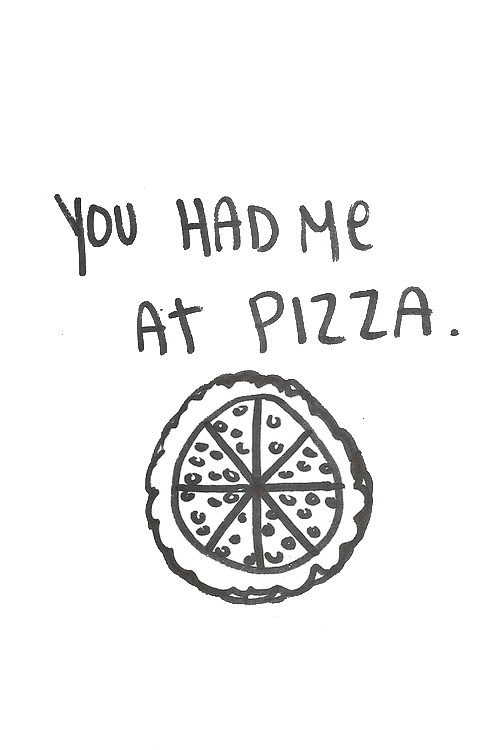 YOU HAD Me
At PIZZA.